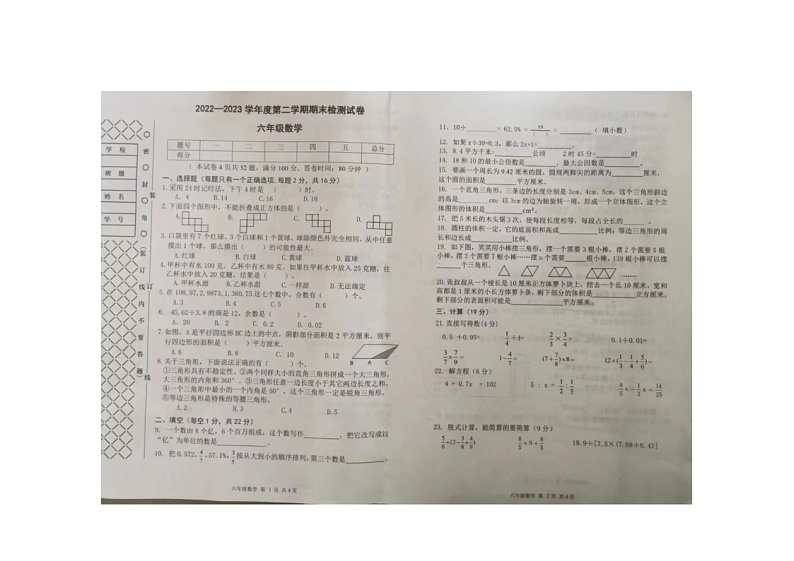 2022—2023 学年度第二学期期末检测试卷
六年级数学
题号 一 二 三 四 五 总分
得分
（本试卷4页共32题，满分100分，答卷时间：80分钟）
学校
班级
姓名
学号
密 封 角
装 订 线 内 不 要 答 题
一、选择题（每题只有一个正确选项,每题2分，共16分）
1. 采用24时记时法，下午4时是（ ）时。
A. 4 B.14 C.16 D.18
2. 下面四个图形中，不能折叠成正方体的是（ ）。
A. B. C. D.
3. 口袋里有7个红球、3个白球和1个黄球，球除颜色外完全相同，从中任意
摸出1个球。那么摸出（ ）的可能性最大。
A.红球 B.白球 C.黄球 D.蓝球
4. 甲杯中有水90克，乙杯中有水80克，如果往甲杯水中放入25克糖，往
乙杯水中放入20克糖，结果是（ ）。
A.甲杯水甜 B.乙杯水甜 C.一样甜 D.无法确定
5. 在108,97,2,9873,1,360,75七个数中，合数有（ ）个。
A.3 B.4 C.5 D.6
6. 45.62÷3.8的商是12，余数是（ ）。
A. 2 B.0.2 C.0.02
7. 如图，A是平行四边形BC边上的中点，阴影部分面积是2平方厘米，则平
行四边形的面积是（ ）平方厘米。
A. 6 B. 8 C. 9
B A C
8. 关于三角形，下面说法正确的有（ ）个。
①三角形具有不稳定性。②两个同样大小的直角三角形拼成一个大三角形，
大三角形的内角和360°。③三角形任意一边长度小于其它两边长度之和。
④一个三角形中最小的一个内角是50°，这个三角形一定是锐角三角形。
⑤等边三角形是特殊的等腰三角形。
A.2 B.3 C.4 D.5
二、填空（每空1分，共22分）
9. 一个数由8个亿，6个百万组成，这个数写作________，把它改写成以
“亿”为单位的数是________。
10. 把0.572, 4/7, 57.1%, 3/5 按从大到小的顺序排列，第三个数是________
六年级数学 第 1 页 共4页
11. 10÷____= 62.5% = 15/( ) =____（填小数）
12. 如果x÷30=0.3，那么2x+1=________。
13. 8.4平方千米=________公顷 2时45分=________时
14. 18和10的最小公倍数是________，最大公因数是________。
15. 要画一个周长为9.42厘米的圆，圆规两脚尖的距离为________厘米，
这个圆的面积是________平方厘米。
16. 一个直角三角形，三条边的长度分别是3cm、4cm、5cm，这个三角形斜边
的高是________cm；以3cm的边为轴旋转一周，形成一个立体图形，这个立
体图形的体积是________cm³。
17. 把5米长的木头锯3次，使每段长度相等，每段占全长的________。
18. 圆柱的体积一定，它的底面积和高成________比例；等边三角形的周
长和边长成________比例。
19. 如下图，笑笑用小棒摆三角形，摆一个需要3根小棒，摆2个需要5根
小棒，摆3个需要7根小棒……摆n个需要____根小棒，139根小棒可以摆
____个三角形。
20. 张叔叔从一个棱长是10厘米正方体萝卜块上，挖去一个长10厘米，宽和
高都是1厘米的小长方体萝卜条，剩下部分的体积是________立方厘米，
剩下部分的表面积可能是________平方厘米。
三、计算（19分）
21. 直接写得数(4分)
0.5+0.95= 1/4÷4= 2/3×3/4= 0.1÷0.01=
3/7×7/9= 1-4/7= (7+7/8)×8= 12×(1/3+1/4+5/6)=
22. 解方程（6分）
4+0.7x = 102 5：x = 1/2：1/5
23. 脱式计算，能简算的要简算（9分）
18.9÷[7.5×(7.68÷6.4)]
六年级数学 第 2 页 共4页